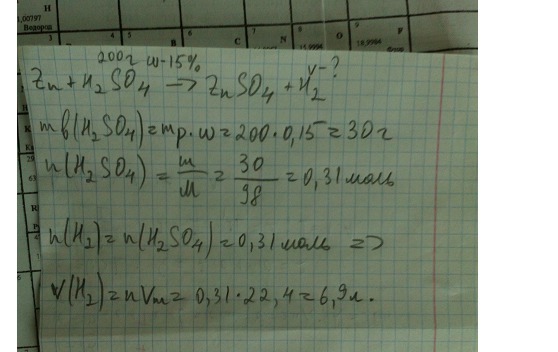 Н
1,00797
Водород
3
5
6
7
8
9
В
С
N
О
F
15,9994
18,9984
Фтор
200г w-15% v-?
Zn + H₂SO₄ → ZnSO₄ + H₂
mв(H₂SO₄) = mр·w = 200·0,15 = 30г
n(H₂SO₄) = m/M = 30/98 = 0,31 моль
n(H₂) = n(H₂SO₄) = 0,31 моль =>
V(H₂) = nVm = 0,31·22,4 = 6,9л.